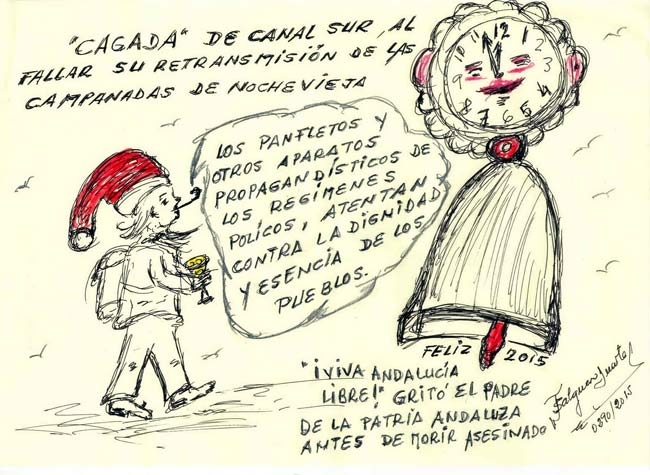 "CAGADA" DE CANAL SUR, AL
FALLAR SU RETRANSMISIÓN DE LAS
CAMPANADAS DE NOCHEVIEJA
LOS PANFLETOS Y
OTROS APARATOS
PROPAGANDÍSTICOS DE
LOS REGÍMENES
POLICOS, ATENTAN
CONTRA LA DIGNIDAD
Y ESENCIA DE LOS
PUEBLOS.
12
1
2
3
4
5
6
7
8
9
FELIZ 2015
"¡VIVA ANDALUCÍA
LIBRE!" GRITÓ EL PADRE
DE LA PATRIA ANDALUZA
ANTES DE MORIR ASESINADO
0390/2015